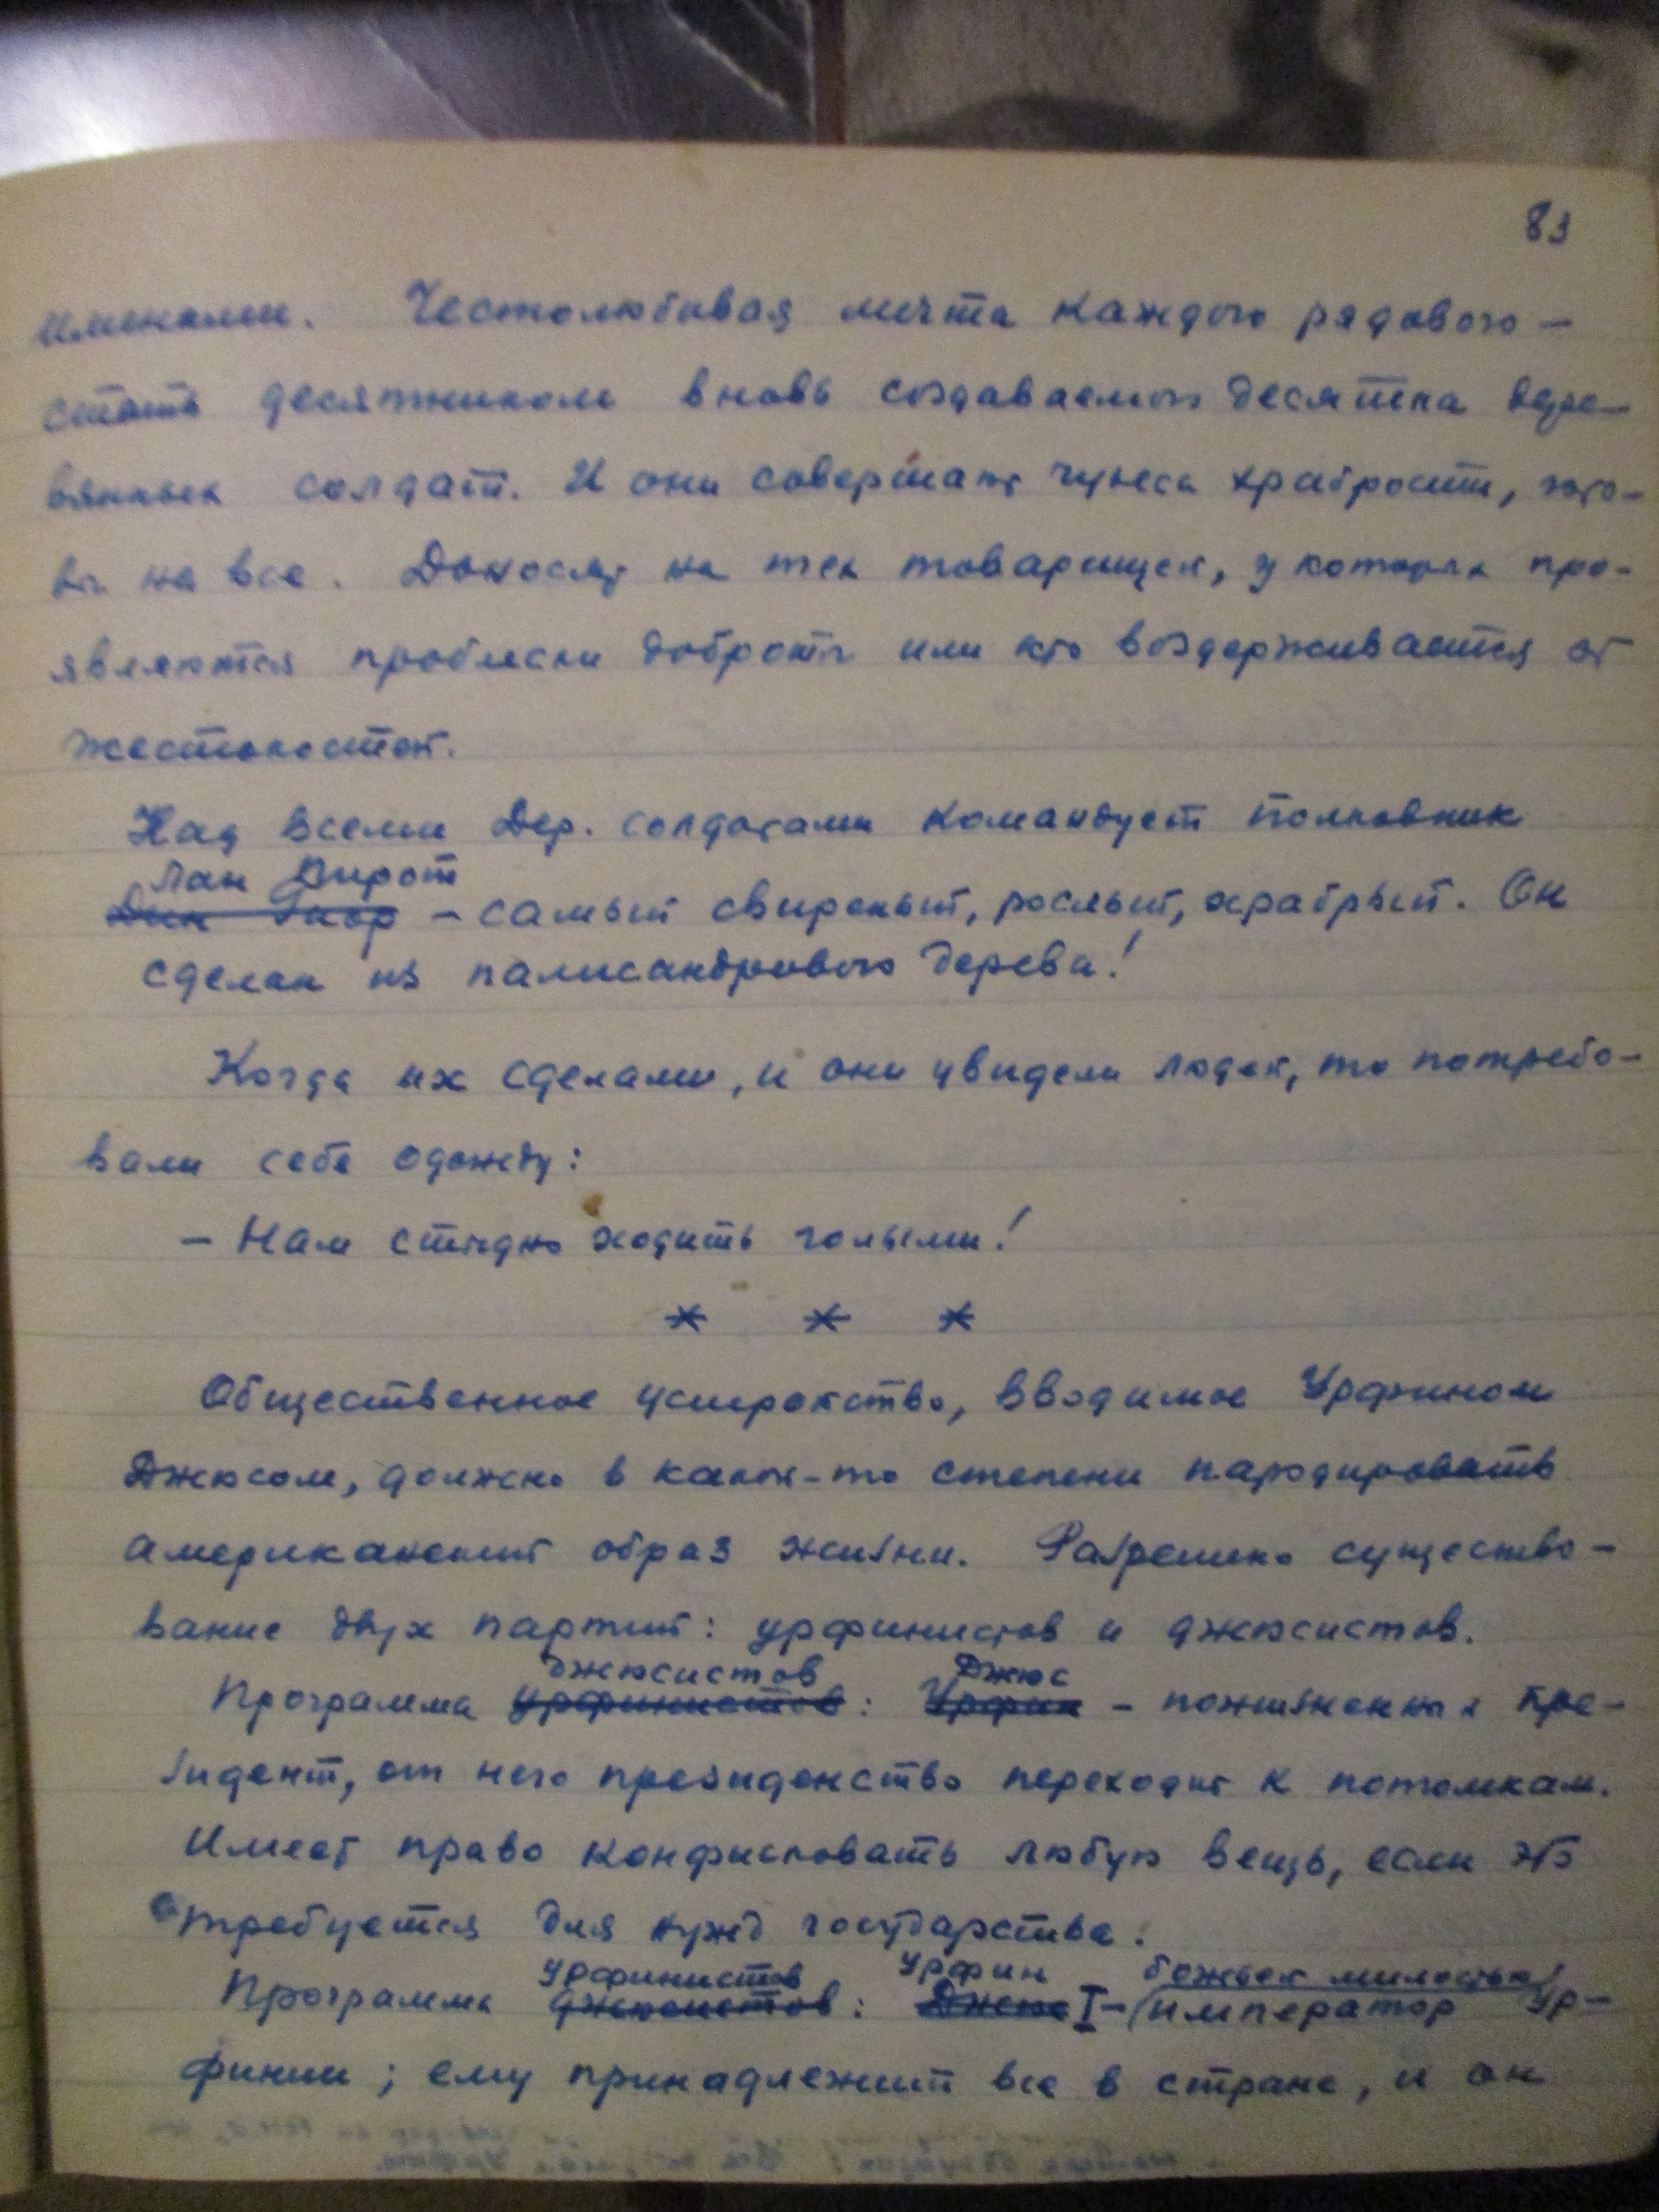 83
именами. Честолюбивая мечта каждого рядового –
стать десятником вновь создаваемого десятка дере-
вянных солдат. И они совершают чудеса храбрости, гото-
вы на все. Доносят на тех товарищей, у которых про-
являются проблески доброты или кто воздерживается от
жестокостей.
Над всеми дер. солдатами командует полковник
Лан Пирот
Дин Гиор – самый свирепый, рослый, храбрый. Он
сделан из палисандрового дерева!
Когда их сделали, и они увидели людей, то потребо-
вали себе одежду:
– Нам стыдно ходить голыми!
* * *
Общественное устройство, вводимое Урфином
Джюсом, должно в какой-то степени пародировать
американский образ жизни. Разрешено существо-
вание двух партий: урфинистов и джюсистов.
джюсистов Джюс
Программа урфинистов: Урфин – пожизненный пре-
зидент, от него президентство переходит к потомкам.
Имеет право конфисковать любую вещь, если это
требуется для нужд государства.
урфинистов Урфин божьей милостью
Программа джюсистов: Джюс I – император Ур-
финии; ему принадлежит все в стране, и он